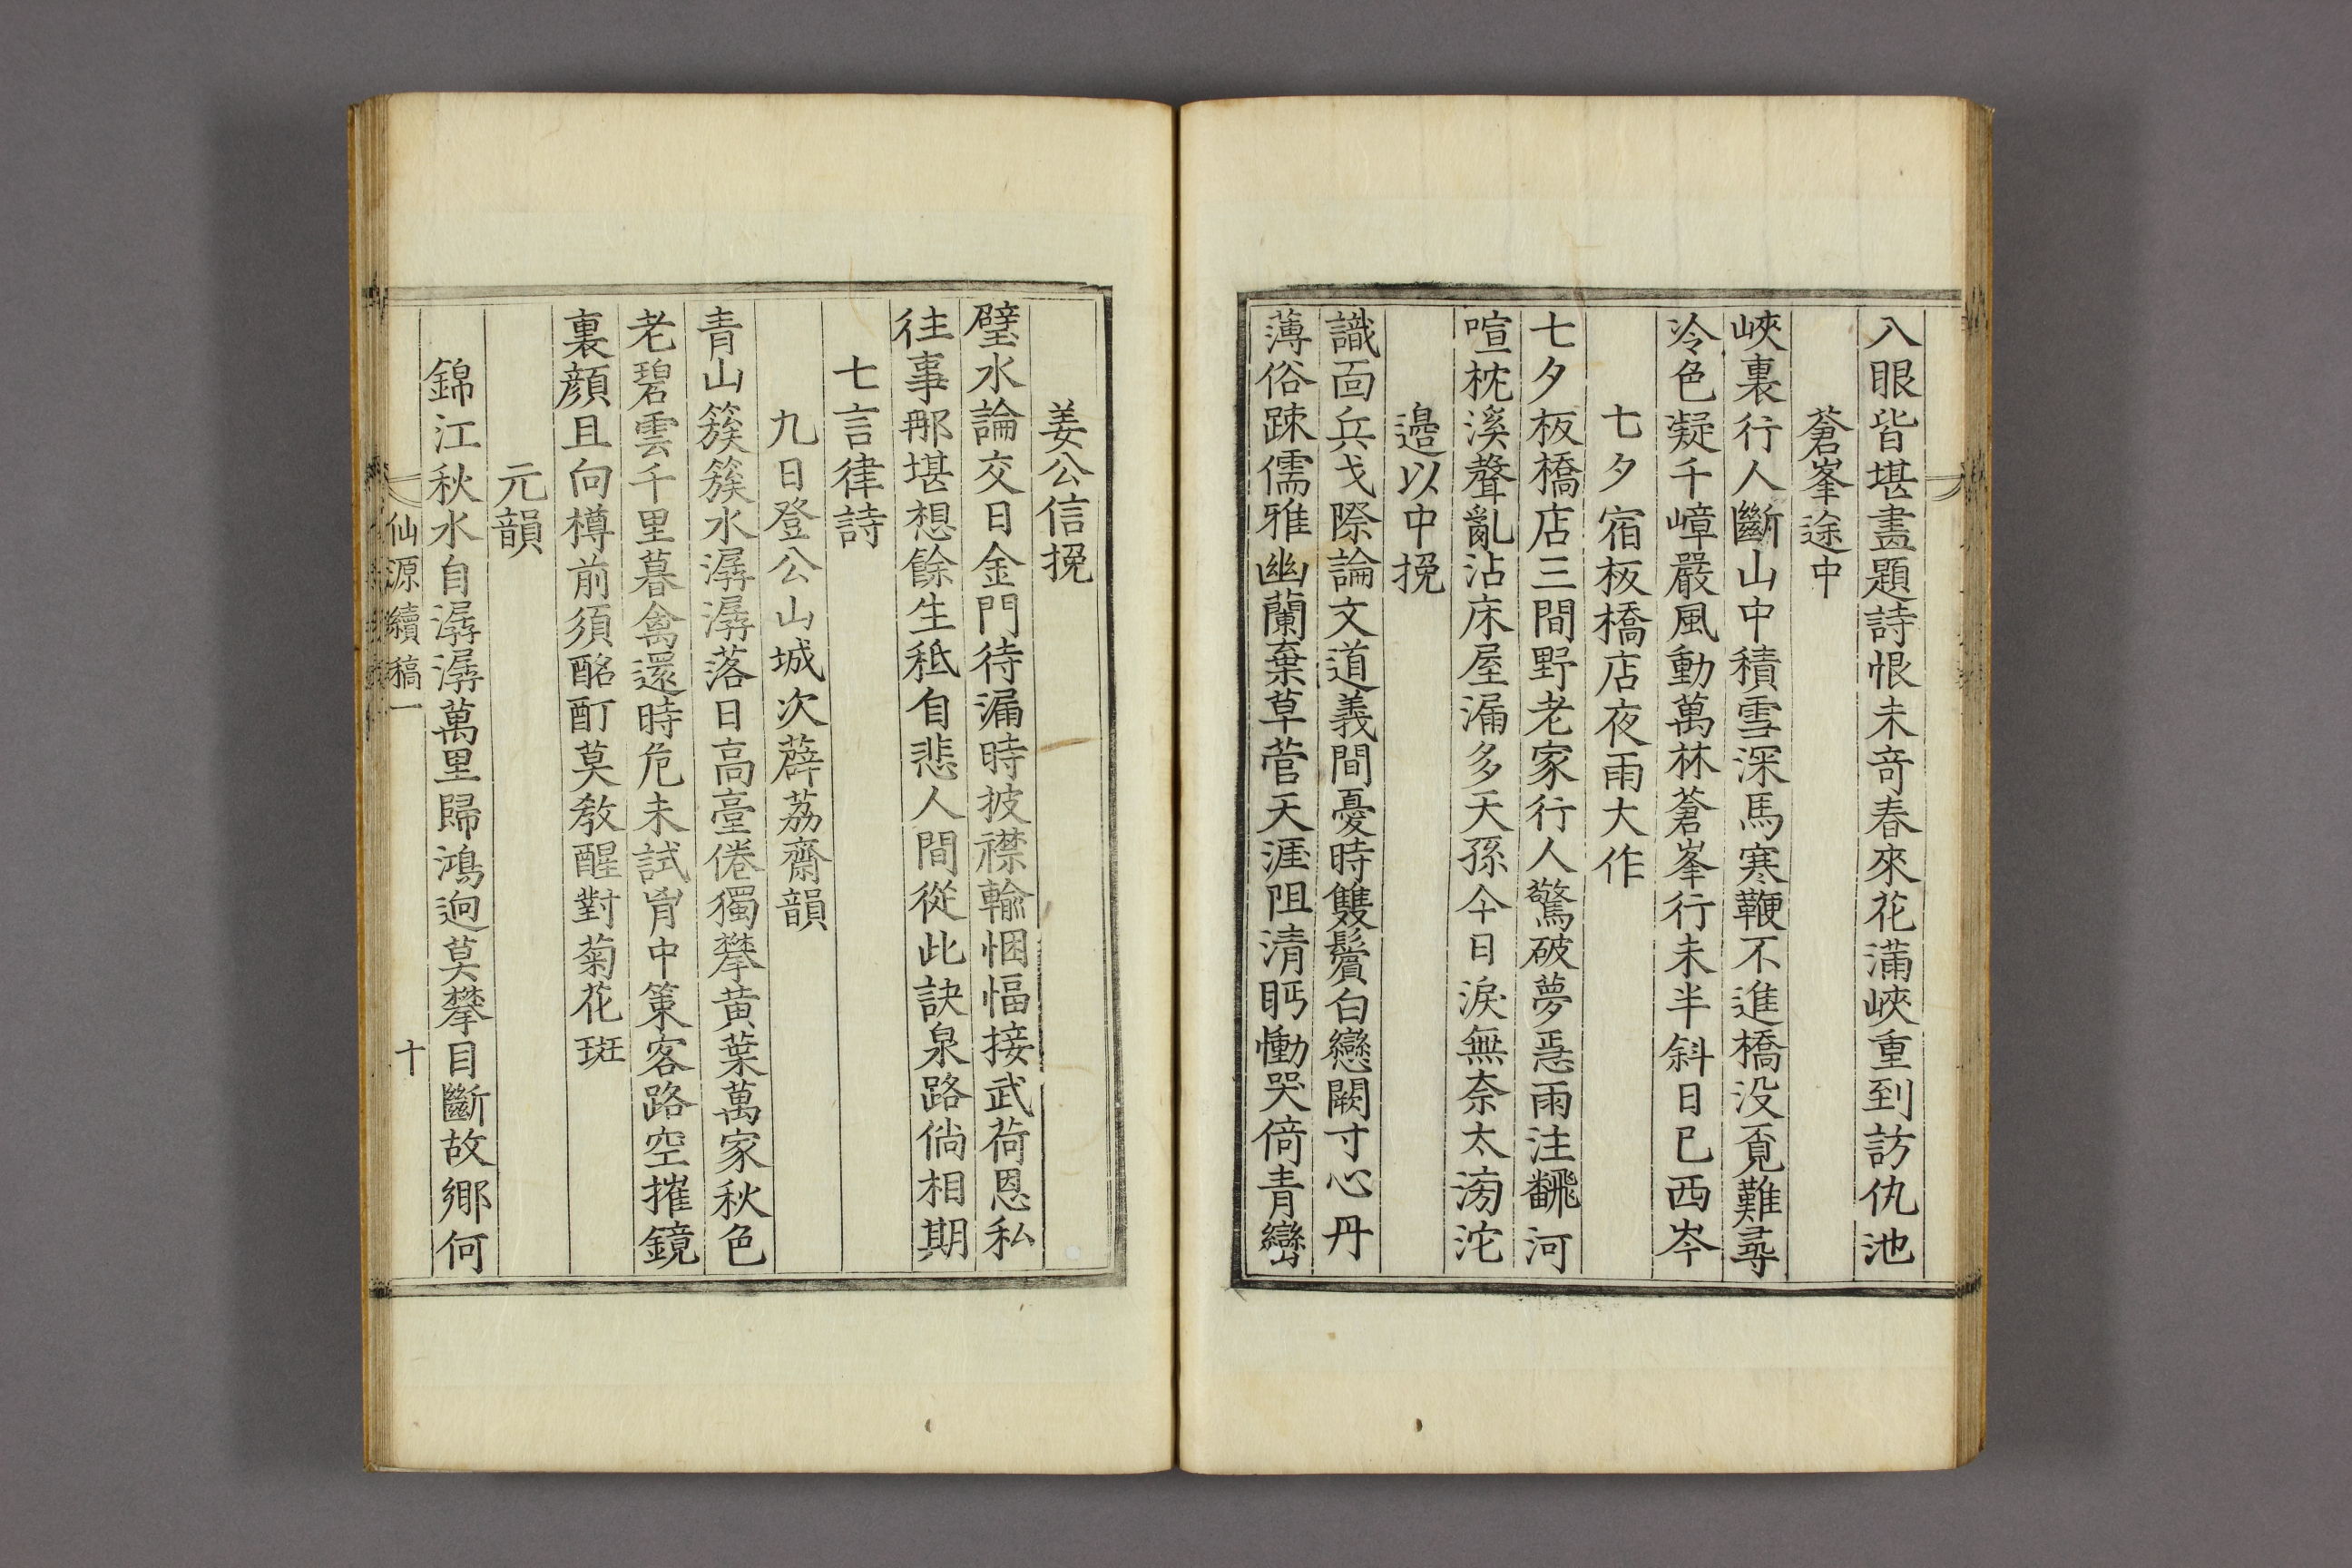 入眼皆堪畫題詩恨未竒春來花滿峽重到訪仇池
蒼峯途中
峽裏行人斷山中積雪深馬寒鞭不進橋没覔難尋
冷色凝千嶂嚴風動萬林蒼峯行未半斜日已西岑
七夕宿板橋店夜雨大作
七夕板橋店三間野老家行人驚破夢惡雨注飜河
喧枕溪聲亂沾床屋漏多天孫今日淚無奈太滂沱
邉以中挽
識靣兵戈際論文道義間憂時雙鬢白戀闕寸心丹
薄俗踈儒雅幽蘭棄草菅天涯阻清眄慟哭倚青巒
姜公信挽
璧水論交日金門待漏時披襟輸悃愊接武荷恩私
徃事那堪想餘生秪自悲人間從此訣泉路倘相期
七言律詩
九日登公山城次薜荔齋韻
青山簇簇水潺潺落日高臺倦獨攀黄葉萬家秋色
老碧雲千里暮禽還時危未試胷中策客路空摧鏡
裏顔且向樽前須酩酊莫敎醒對菊花斑
元韻
錦江秋水自潺潺萬里歸鴻逈莫攀目斷故鄉何
仙源續稿一 十